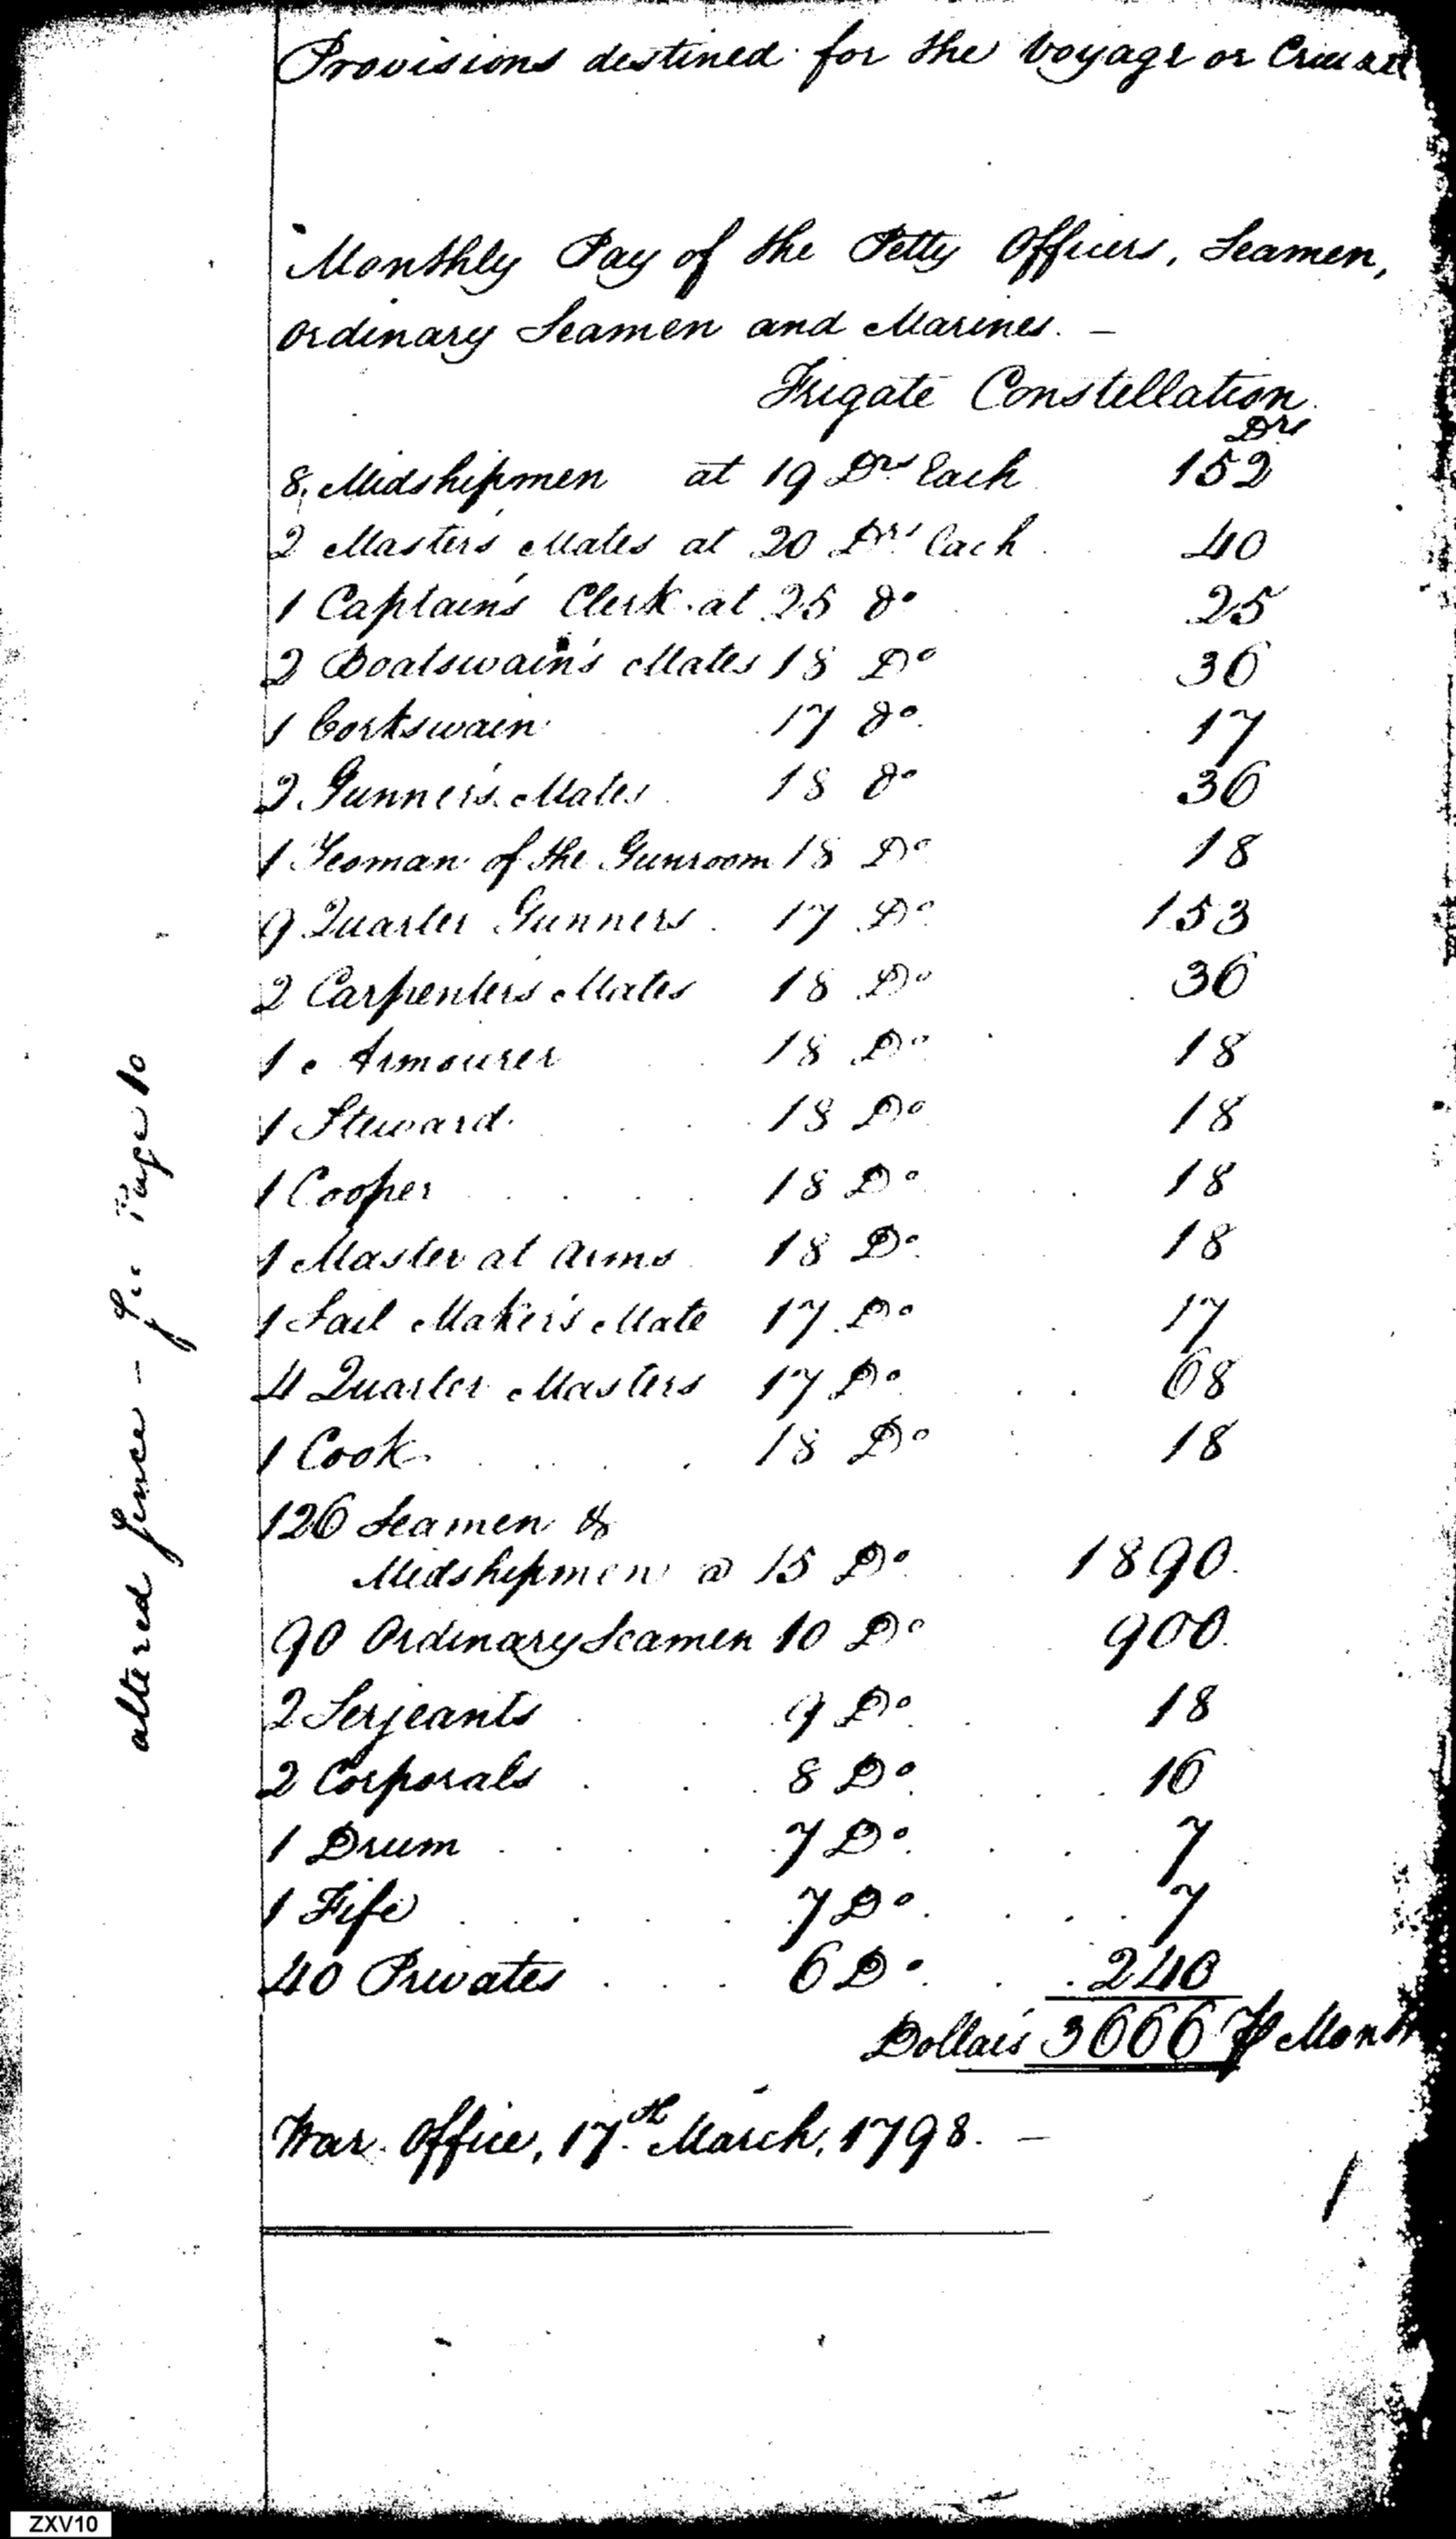 Provisions destined for the Voyage or Cruize
Monthly Pay of the Petty Officers, Seamen,
Ordinary Seamen and Marines. —
Frigate Constellation.
Drs
8. Midshipmen at 19 Drs Each 152
2 Master's Mates at 20 Drs Each 40
1 Captain's Clerk at 25 do 25
2 Boatswain's Mates 18 Do 36
1 Corkswain 17 do 17
2 Gunner's Mates 18 do 36
1 Yeoman of the Gunroom 18 Do 18
9 Quarter Gunners 17 Do 153
2 Carpenter's Mates 18 Do 36
1 Armourer 18 Do 18
1 Steward 18 Do 18
1 Cooper 18 Do 18
1 Master at Arms 18 Do 18
1 Sail Maker's Mate 17 Do 17
4 Quarter Masters 17 Do 68
1 Cook 18 Do 18
126 Seamen &
Midshipmen @ 15 Do 1890.
90 Ordinary Seamen 10 Do 900.
2 Serjeants 9 Do 18
2 Corporals 8 Do 16
1 Drum 7 Do 7
1 Fife 7 Do 7
40 Privates 6 Do 240
Dollars 3666 ⅌ Month
War Office, 17th March, 1798. —
altered since – See Page 10
ZXV10